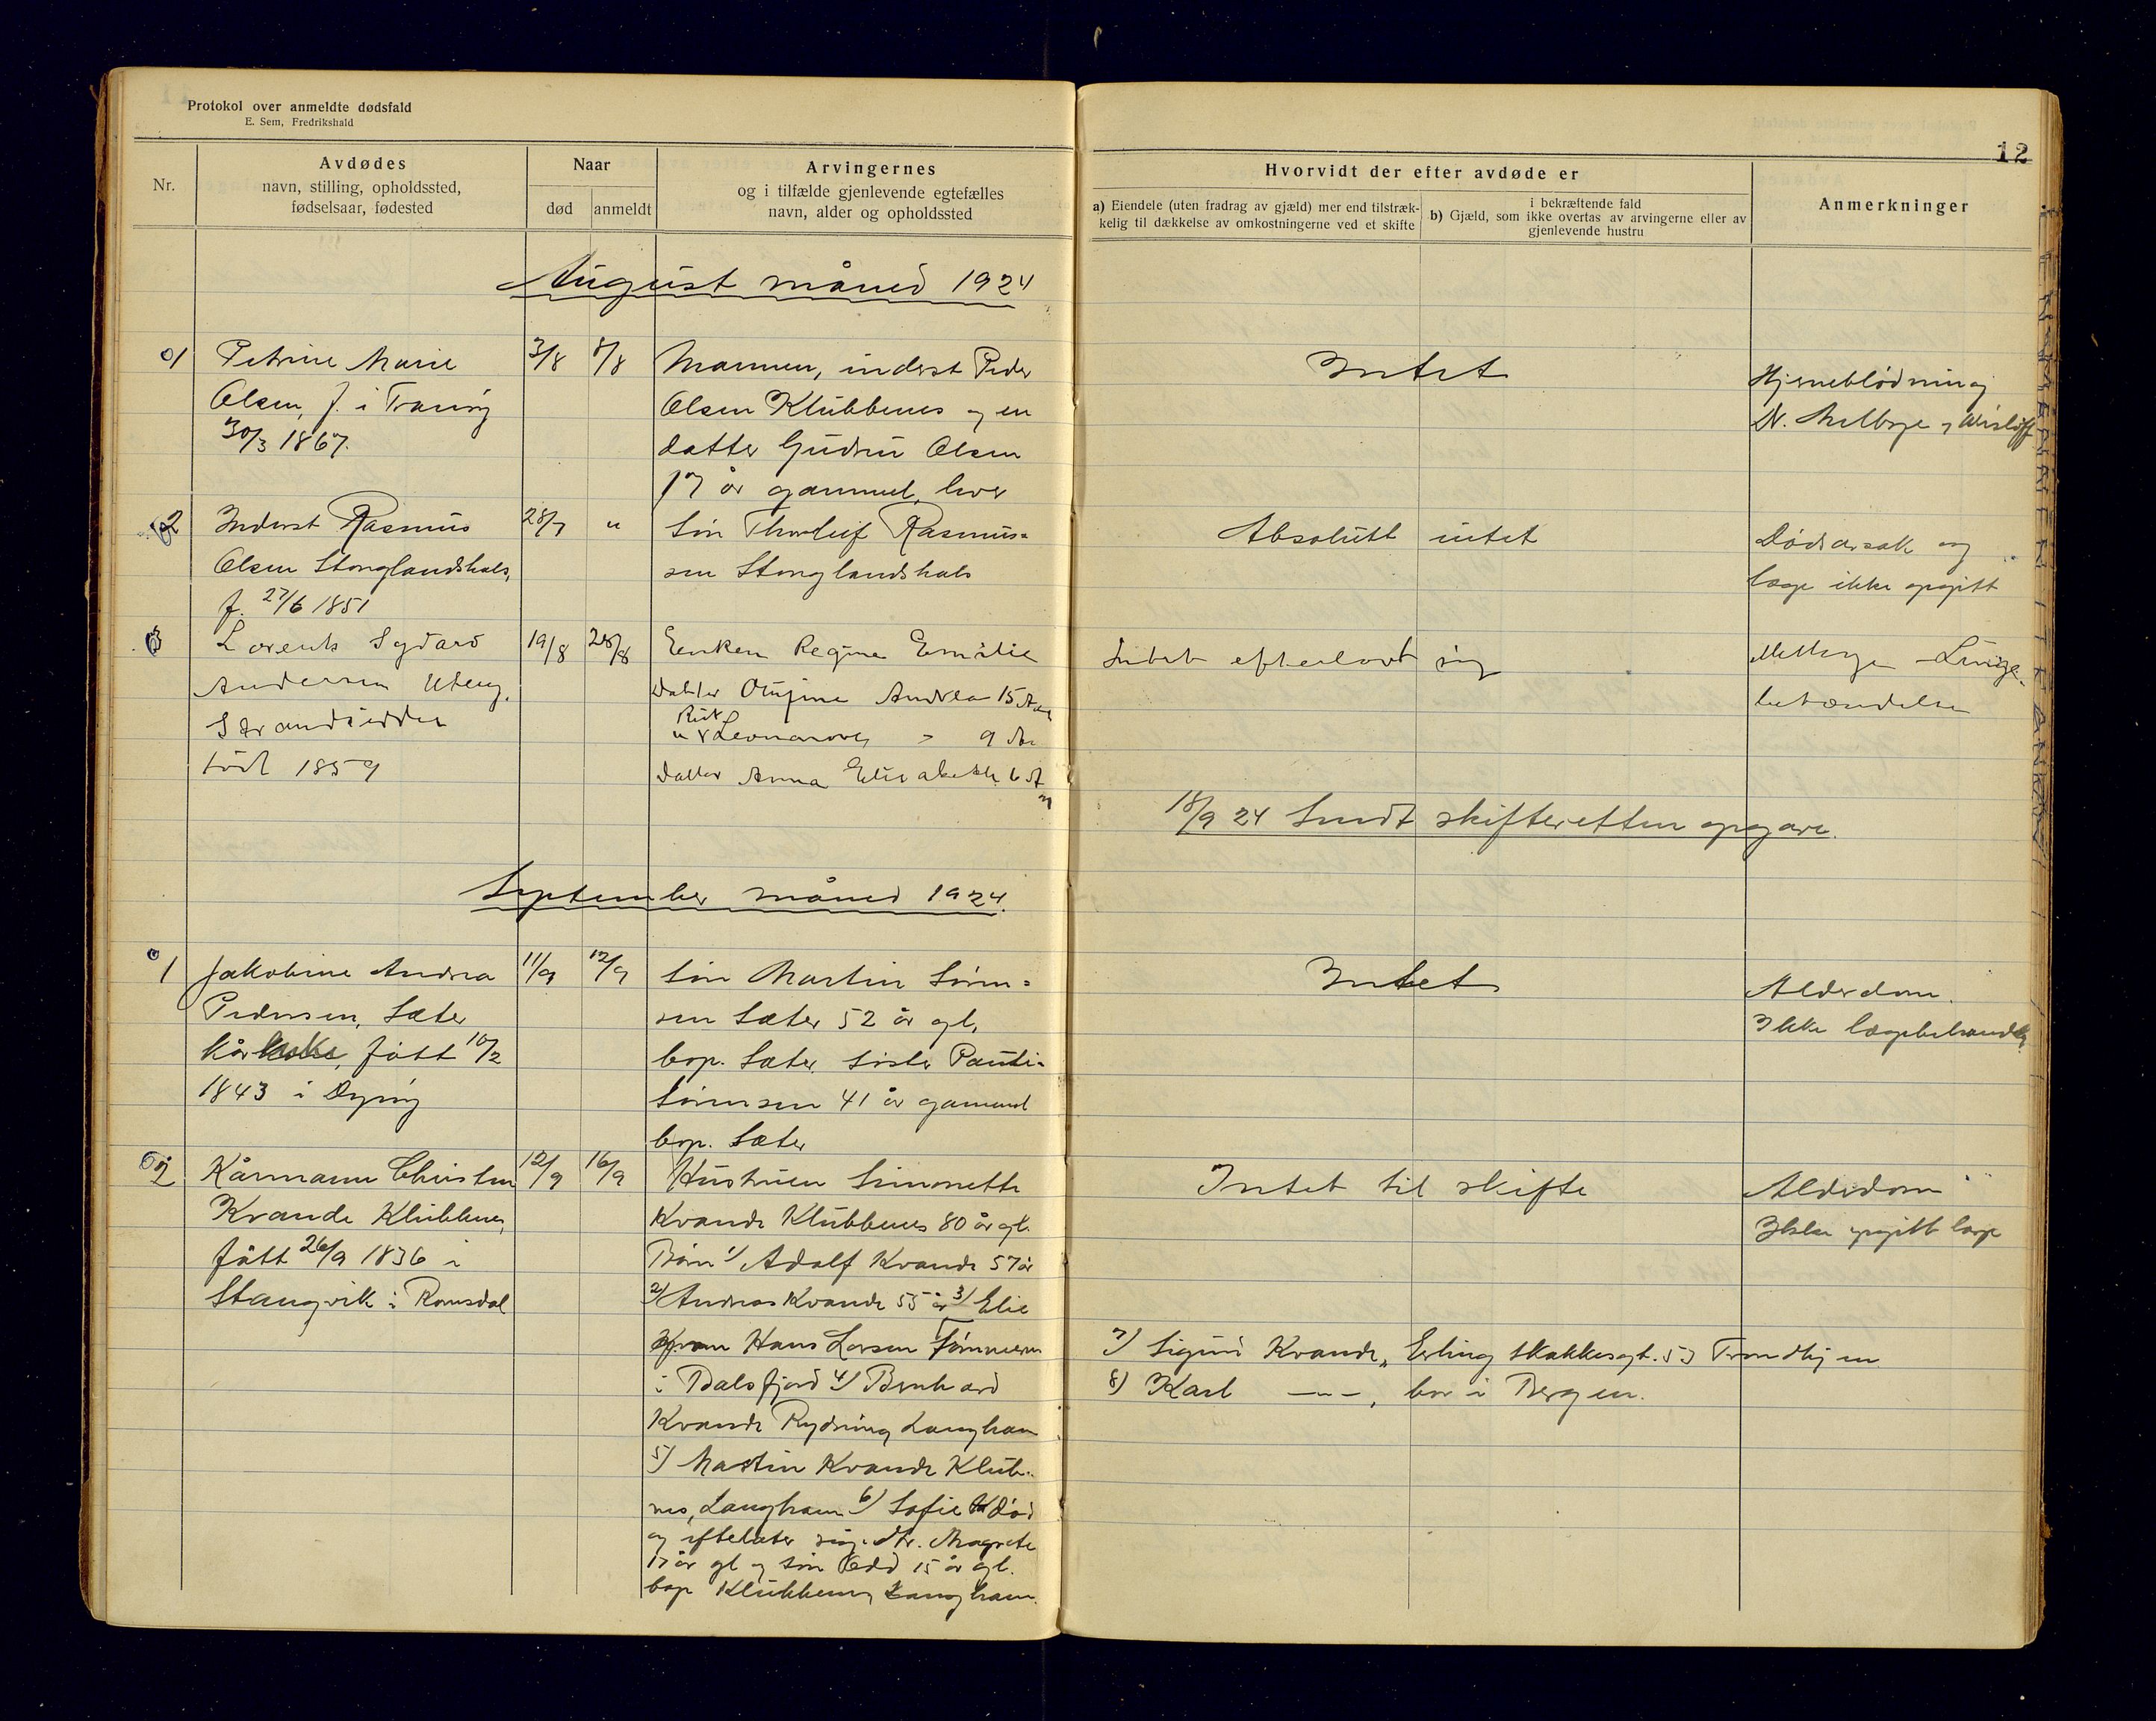 Protokol over anmeldte dødsfald
E. Sem, Fredrikshald
12
Nr.
Avdødes
navn, stilling, opholdssted,
fødselsaar, fødested
Naar
død anmeldt
Arvingernes
og i tilfælde gjenlevende egtefælles
navn, alder og opholdssted
Hvorvidt der efter avdøde er
a) Eiendele (uten fradrag av gjæld) mer end tilstræk-
kelig til dækkelse av omkostningerne ved et skifte
i bekræftende fald
b) Gjæld, som ikke overtas av arvingerne eller av
gjenlevende hustru
Anmerkninger
August måned 1924
1
Petrine Marie
Olsen, f. i Tranøy
30/3 1867.
3/8 8/8
Mannen, inderst Peder
Olsen Klubbenes og en
datter Gudrun Olsen
17 år gammel, lever
Intet
Hjerneblødning
Dr. Melbye, Wisløff
2
Inderst Rasmus
Olsen Stonglandshals,
f. 27/6 1851
28/7 "
Søn Thorleif Rasmus=
sen Stonglandshals
Absolutt intet
Dødsarsak og
læge ikke opgitt
3
Lorents Sydard
Andersen Uteng,
født 1859
19/8 28/8
Enken Regine Emilie
Datter Olufine Andrea 15 Aar
9 Aar
datter Anna Elisabeth 6 A
Intet efterladt sig
Melbye
18/9 24 Sendt skifteretten opgave.
September måned 1924.
1
Jakobine Andrea
Pedersen, Sæter
født 10/2
1843 i Dyrøy
11/9 12/9
Søn Martin Søren=
sen Sæter 52 år gl.
bop. Sæter. Søster
Sørensen 41 år gammel
bop. Sæter
Intet
Alderdom.
Ikke lægebehandlet
2
Kårmann Christen
Kvande Klubbenes,
født 26/9 1836 i
Stangvik i Romsdal
12/9 16/9
Hustruen Simonette
Kvande Klubbenes 80 år gl.
Børn 1) Adolf Kvande 57 år
2) Andreas Kvande 55 år 3) Elie
Hans Larsen
i Balsfjord 4) Bernhard
Kvande Rydning Langhavn
5) Martin Kvande Klub-
nes, Langhavn 6) Sofie død
og efterlater sig. dtr. Magrete
17 år gl og søn Edd 15 år gl.
bop Klubbenes Langhavn.
Intet til skifte
Alderdom
Ikke opgitt læge
7) Sigurd Kvande, Erling Skakkesgt. 53 Trondhjem
8) Karl —"—, bor i Bergen.